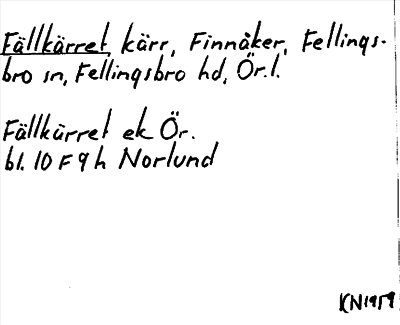 Fällkärret, kärr, Finnåker, Fellings-
bro sn, Fellingsbro hd, Ör.l.
Fällkärret ek Ör.
bl. 10 F 9 h Norlund
KN1959